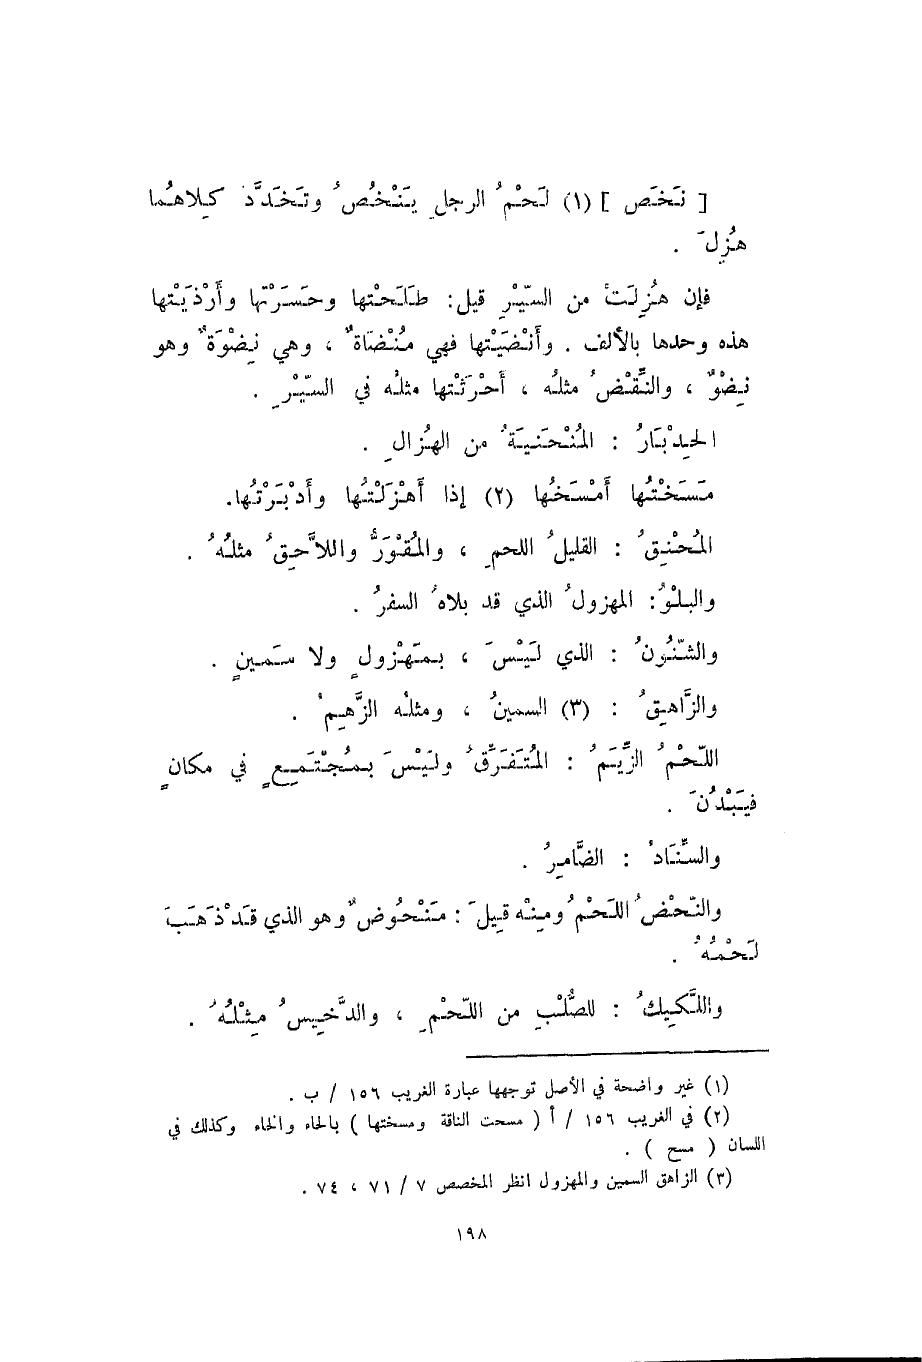 [ نَخَصَ ] (١) لَحْمُ الرجلِ يَنْخُصُ وتَخَدَّدَ كِلاهُما
هُزِلَ .
فإن هُزِلَتْ من السَّيْرِ قيل: طَلَحْتها وحَسَرْتها وأَرْذَيْتها
هذه وحدها بالألف . وأَنْضَيْتها فهي مُنْضَاةٌ ، وهي نِضْوَةٌ وهو
نِضْوٌ ، والنِّقْضُ مثلُه ، أَحْرَثْتها مثلُه في السَّيْرِ .
الحِدْبَارُ : المُنْحَنِيَةُ من الهُزالِ .
مَسَخْتُها أَمْسَخُها (٢) إذا أَهْزَلْتُها وأَدْبَرْتُها.
المُحْنِقُ : القليلُ اللحمِ ، والمُقْوَرُّ واللاَّحِقُ مثلُهُ .
والبِلْوُ: المهزولُ الذي قد بلاهُ السفرُ .
والشَّنُونُ : الذي لَيْسَ ، بمَهْزولٍ ولا سَمينٍ .
والزَّاهِقُ : (٣) السمينُ ، ومثلُه الزَّهِمُ .
اللَّحْمُ الزِّيَمُ : المُتَفَرِّقُ ولَيْسَ بمُجْتَمِعٍ في مكانٍ
فيَبْدُنَ .
والسِّنَادُ : الضَّامِرُ .
والنَّحْضُ اللَحْمُ ومِنْه قِيلَ : مَنْحُوضٌ وهو الذي قَدْ ذَهَبَ
لَحْمُهُ .
واللَّكِيكُ : للصُّلْبِ من اللَّحْمِ ، والدَّخِيسُ مِثْلُهُ .
(١) غير واضحة في الأصل توجهها عبارة الغريب ١٥٦ / ب .
(٢) في الغريب ١٥٦ / أ ( مسحت الناقة ومسختها ) بالحاء والخاء وكذلك في
اللسان ( مسح ) .
(٣) الزاهق السمين والمهزول انظر المخصص ٧ / ٧١ ، ٧٤ .
١٩٨